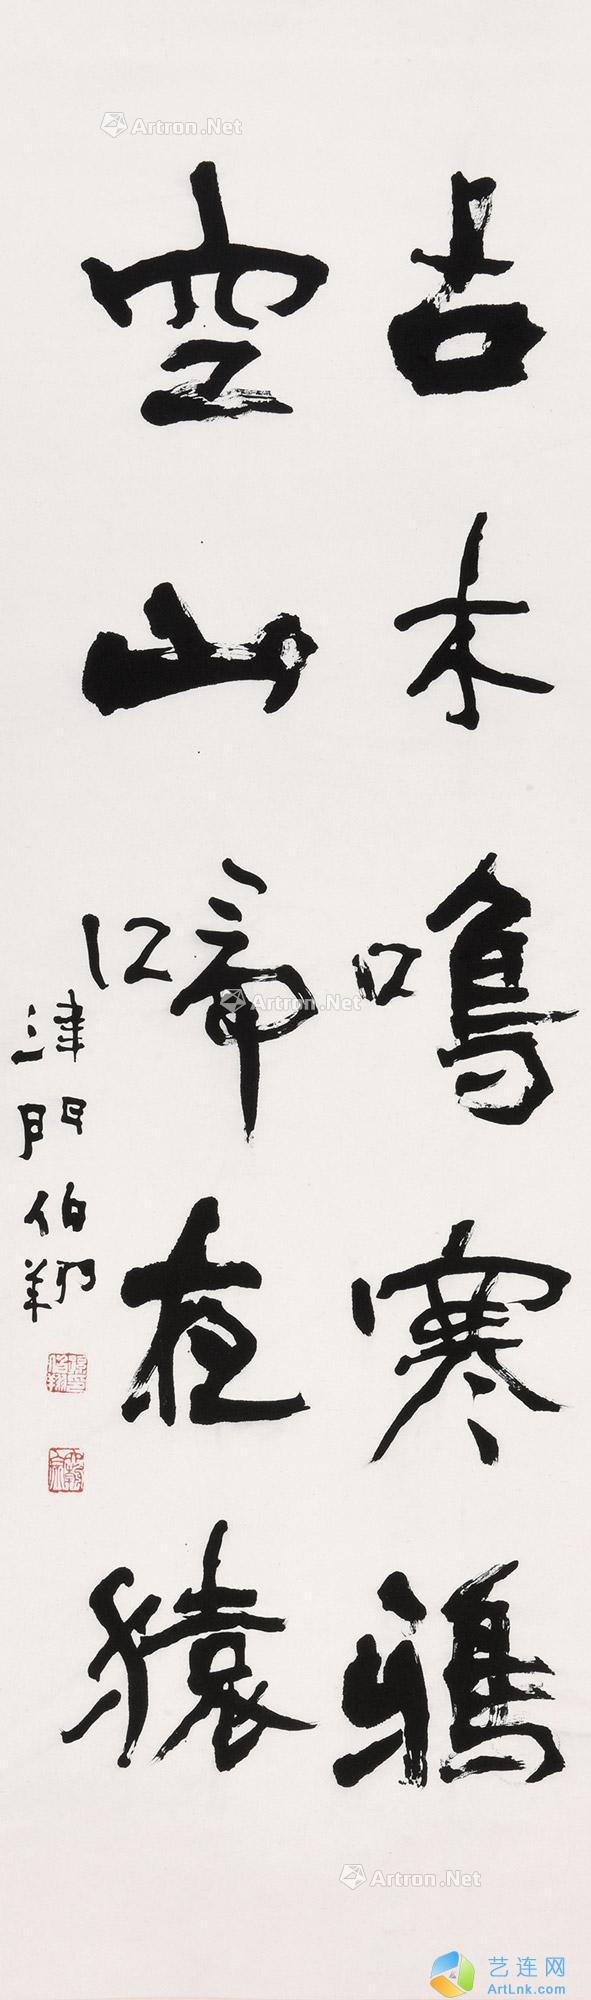 古木鳴寒鴉
空山啼夜猿
津門伯翔
Artron.Net
Artron.Net
Artron.Net
艺连网
ArtLnk.com